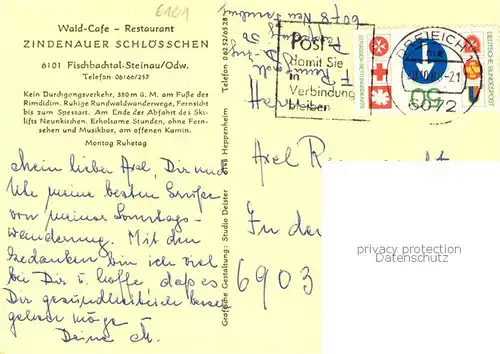 Wald-Cafe – Restaurant
ZINDENAUER SCHLÖSSCHEN
6101 Fischbachtal-Steinau/Odw.
Telefon 06166/257
Kein Durchgangsverkehr, 380 m ü. M. am Fuße des
Rimdidim. Ruhige Rundwaldwanderwege, Fernsicht
bis zum Spessart. Am Ende der Abfahrt des Ski-
lifts Neunkirchen. Erholsame Stunden, ohne Fern-
sehen und Musikbox, am offenen Kamin.
Montag Ruhetag
Mein lieber Axel, Dir und
Ute meine besten Grüße
von meiner Sonntags-
wanderung. Mit den
Gedanken bin ich viel
bei Dir u. hoffe, daß es
Dir gesundheitlich besser
gehen möge
Deine M.
Grafische Gestaltung: Studio Deister 6148 Heppenheim Telefon 06252/6528
6078 Neu
Post -
damit Sie
in
Verbindung
bleiben
DREIEICH 1
6072
STRASSEN-RETTUNGSDIENST
DEUTSCHE BUNDESPOST
50
Axel
In der
6903
privacy protection
Datenschutz